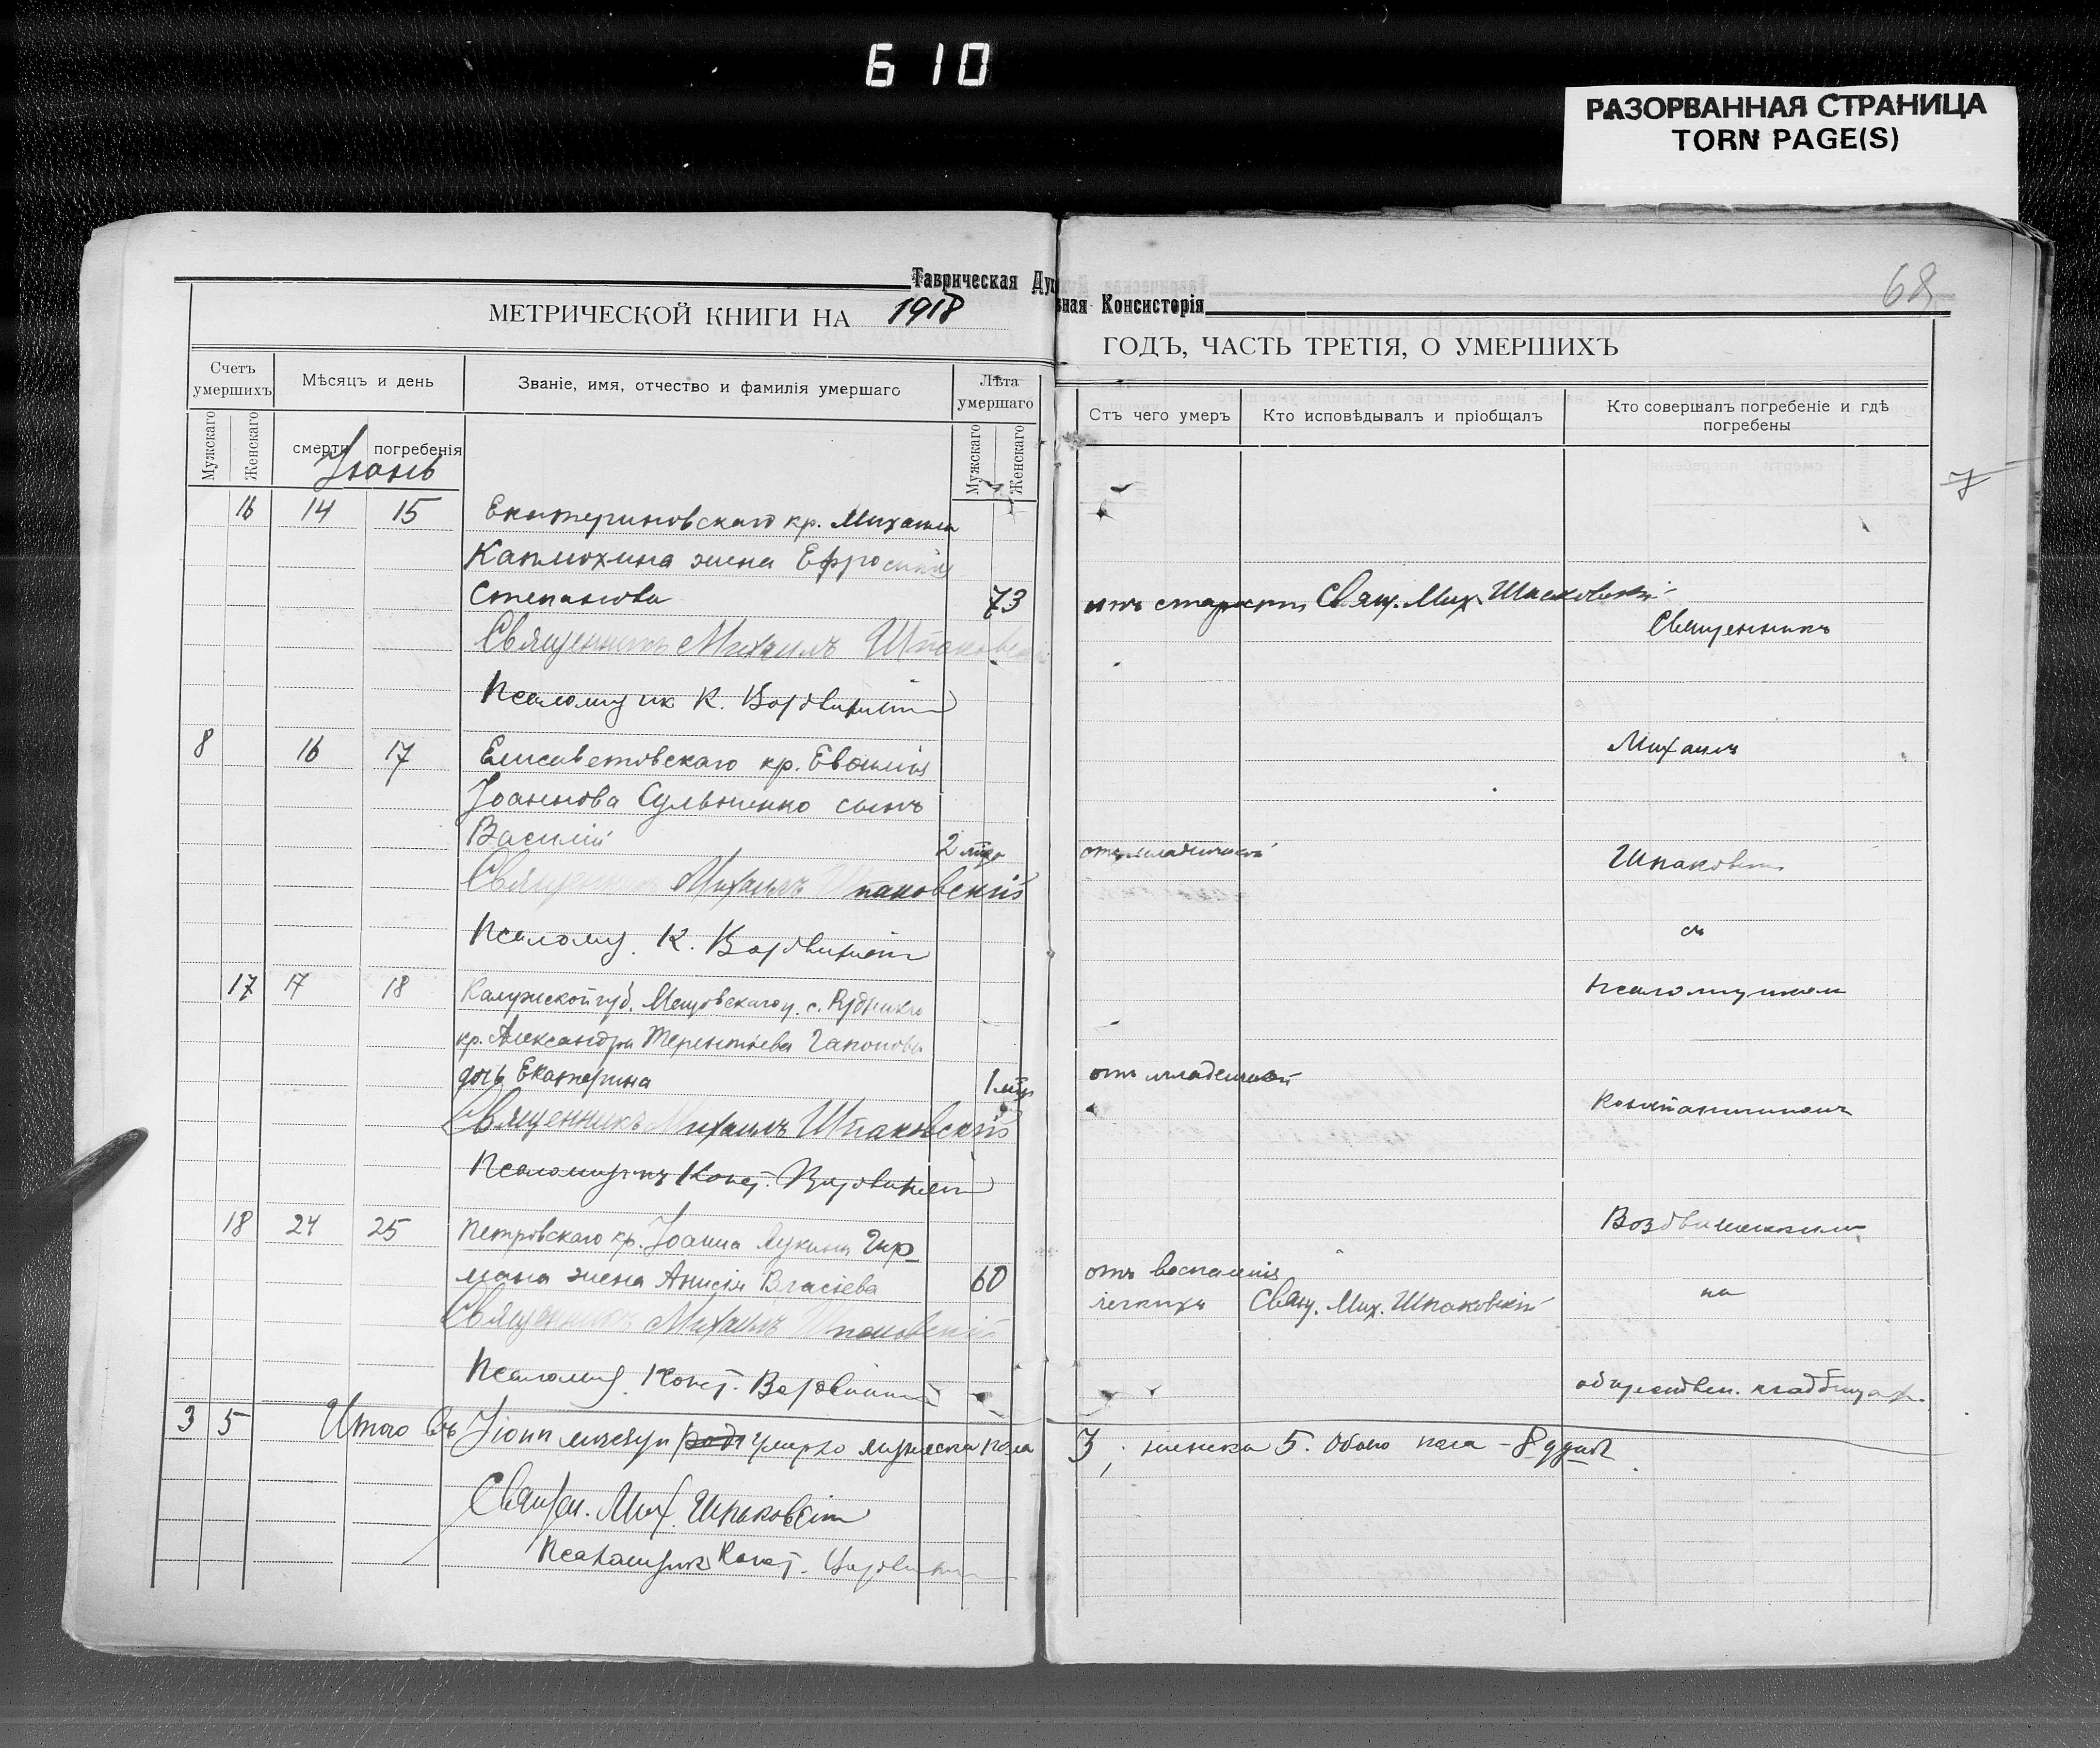 6 10
РАЗОРВАННАЯ СТРАНИЦА
TORN PAGE(S)
68
Таврическая Дух
вная Консисторія
МЕТРИЧЕСКОЙ КНИГИ НА 1918
ГОДЪ, ЧАСТЬ ТРЕТІЯ, О УМЕРШИХЪ
Счетъ умершихъ
Мѣсяцъ и день
Званіе, имя, отчество и фамилія умершаго
Лѣта умершаго
Мужскаго
Женскаго
смерти
погребенія
Мужскаго
Женскаго
Стъ чего умеръ
Кто исповѣдывалъ и пріобщалъ
Кто совершалъ погребеніе и гдѣ погребены
7
Іюнь
16 14 15 Екатериновскаго кр. Михаила
жена Ефросинія
Степанова 73 отъ старости Свящ. Мих. Шпаковскій
Священникъ Михаилъ Шпаковскій
Священникъ
Псаломщик К.
8 16 17 Елисаветовскаго кр.
Михаилъ
Іоаннова сынъ
Василій 2 мѣс отъ младенческой
Шпаковскій
Священникъ Михаилъ Шпаковскій
Псаломщ. К.
съ
17 17 18 Калужской губ. Мещовскаго у. с.
псаломщикомъ
кр. Александра Терентіева Гапонова
дочь Екатерина 1 мѣс отъ младенческой
Священникъ Михаилъ Шпаковскій
Константиномъ
Псаломщикъ Конст.
18 24 25 Петровскаго кр. Іоанна Лукина Гир
Воздвиженскимъ
мана жена Анисія Власіева 60 отъ воспаленія
легкихъ Свящ. Мих. Шпаковскій
на
Священникъ Михаилъ Шпаковскій
Псаломщ. Конст.
обществен. кладбищах.
3 5 Итого въ Іюнѣ месяцѣ умерло мужеска пола 3, женска 5. Обоего пола - 8 душъ
Священ. Мих. Шпаковскій
Псаломщик Конст.